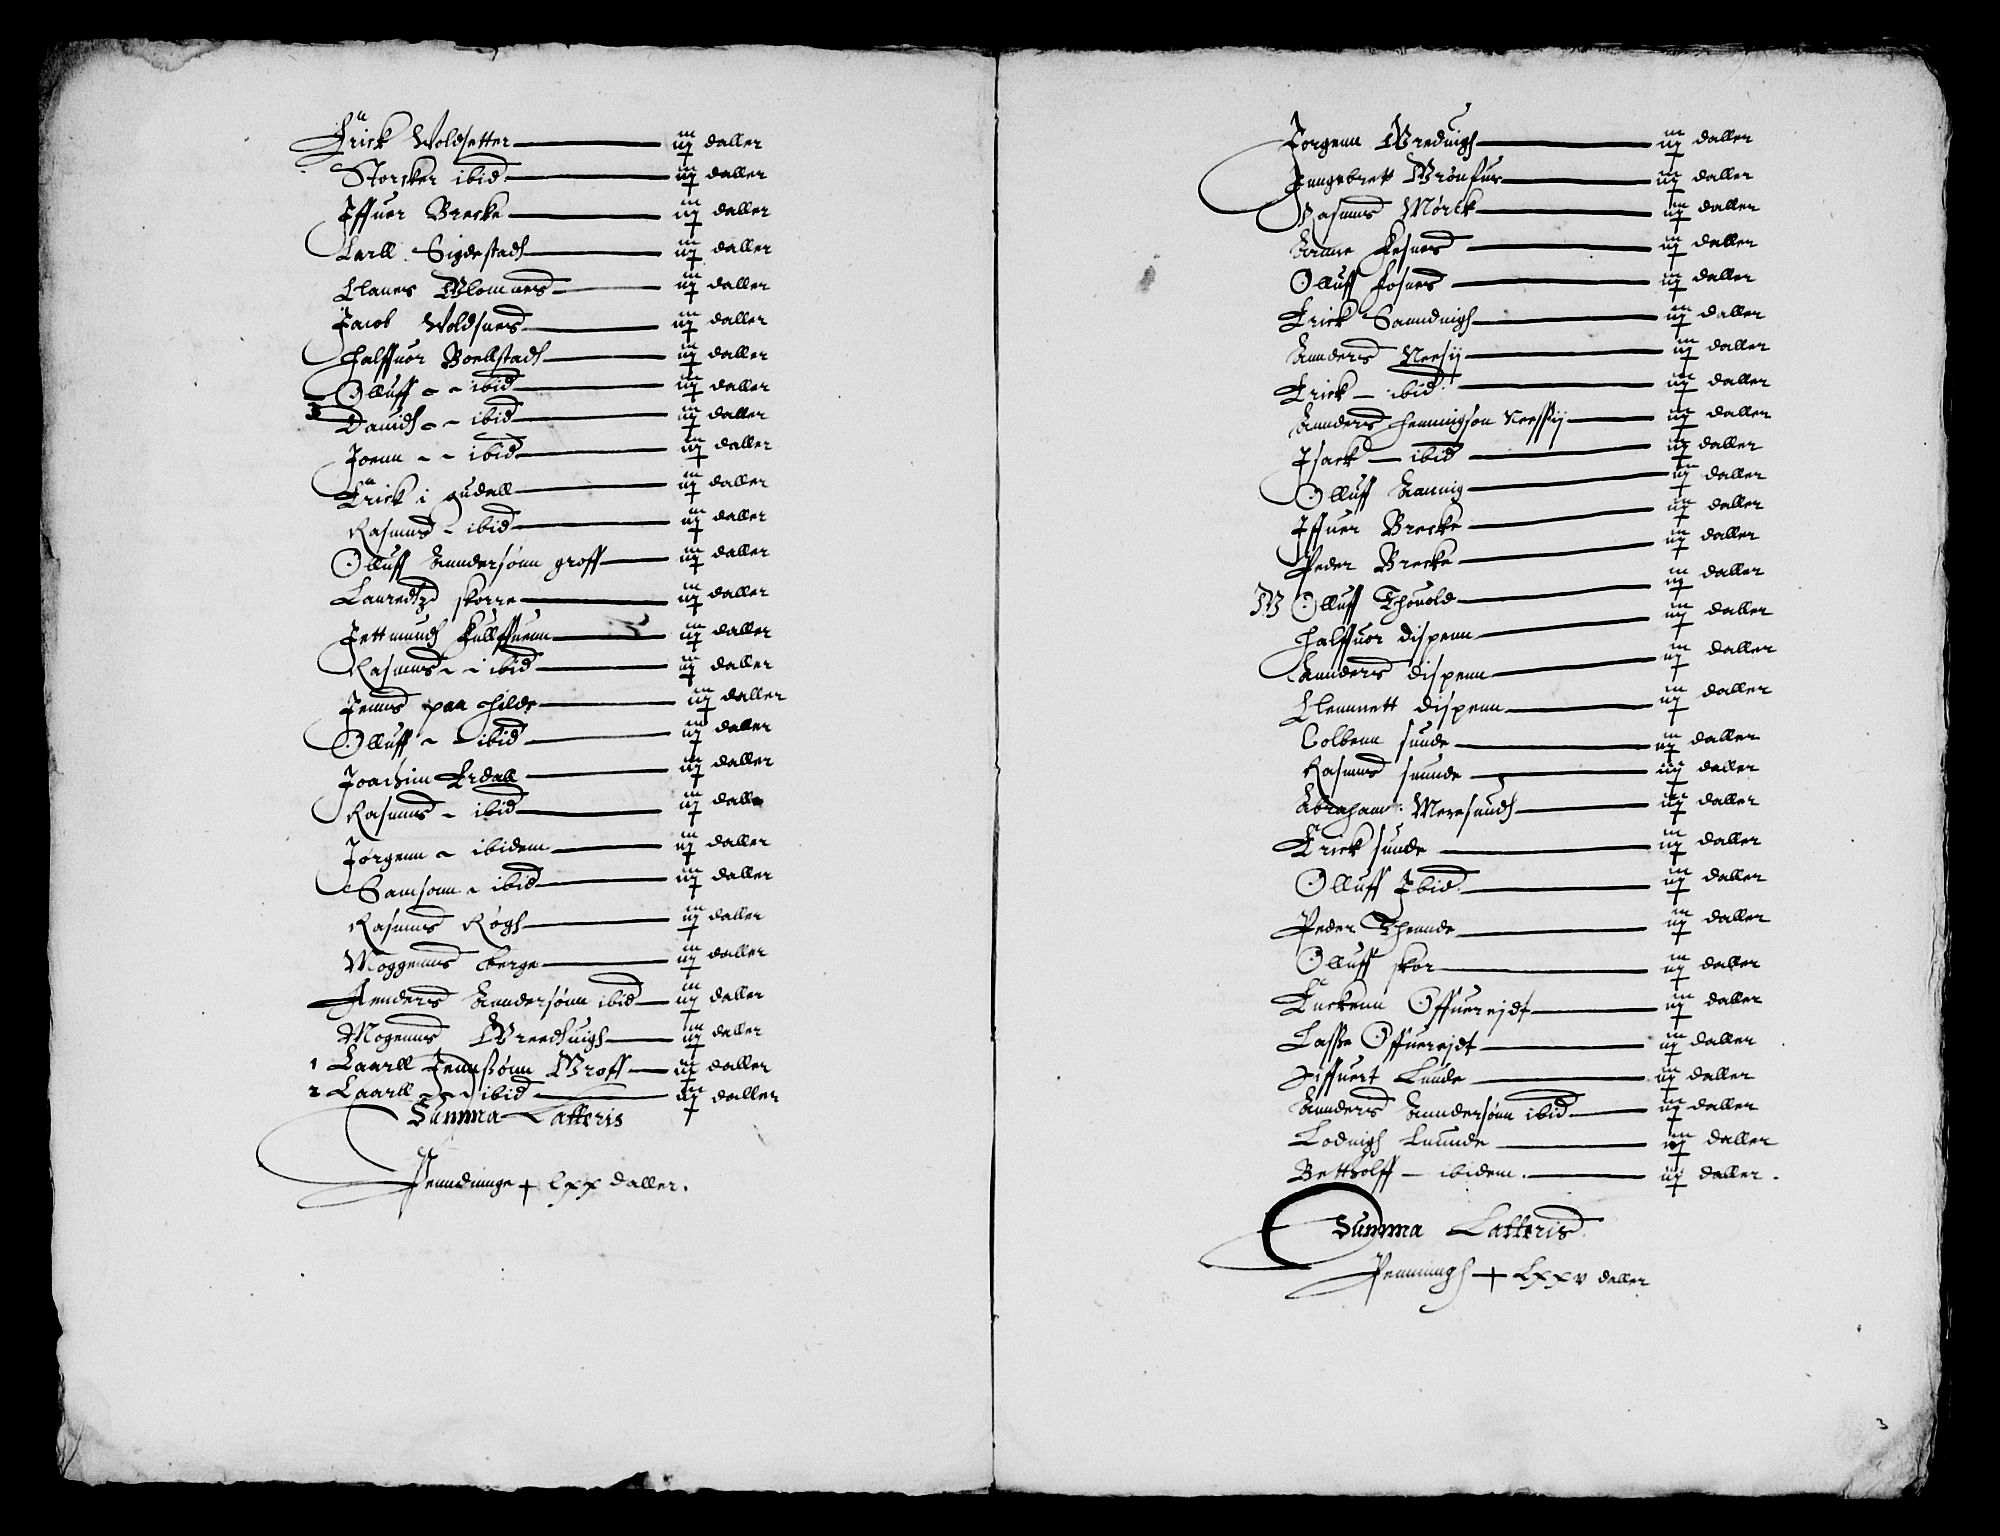 Erick Woldsetter iij daller
Storcker ibid iij daller
Iffuer Brecke iij daller
Larll Sigdestadh iij daller
Claues Blomnes iij daller
Jacob Woldsnes iij daller
Halffuor Boellstadh iij daller
Olluff ibid iij daller
3 Dauidh ibid iij daller
Joenn ibid iij daller
Erick i gudall iij daller
Rasmus ibid iij daller
Olluff Anndersønn groff iij daller
Lauredtz skorre iij daller
Jettmundh Kulffuenn iij daller
Rasmus ibid iij daller
Jenns paa Hilde iij daller
Olluff ibid iij daller
Joachim Erdall iij daller
Rasmus ibid iij daller
Jørgenn ibidem iij daller
Samsonn ibid iij daller
Rasmus Røgh iij daller
Moggenns berge iij daller
Annders Anndersønn ibid iij daller
Mogenns Breeduigh iij daller
1 Laarll Jennssønn Groff iij daller
2 Laarll ibid iij daller
Summa Latteris
Penndinnge lxx daller.
Jørgenn Breduigh iij daller
Inngebrett Brønfur iij daller
Rasmus Mørck iij daller
Anne Fosnes iij daller
Olluff Fosnes iij daller
Erick Sannduigh iij daller
Annders Neesij iij daller
Erick ibid iij daller
Annders Henningsøn Neessij iij daller
Isack ibid iij daller
Olluff Aannig iij daller
Iffuer Brecke iij daller
Peder Brecke iij daller
Olluff Thouold iij daller
Halffuor dispenn iij daller
Annders dispenn iij daller
Clemmett dispenn iij daller
Colbenn sunde iij daller
Rasmus sunnde iij daller
Abraham Meresundh iij daller
Erick sunde iij daller
Olluff Ibid. iij daller
Peder Thennde iij daller
Olluff skor iij daller
Enckenn Offuerejdt iij daller
Lasse Offuerejdt iij daller
Siffuert Lunde iij daller
Annders Anndersønn ibid iij daller
Loduigh Lunnde iij daller
Bettholff ibidem. iij daller.
Summa Latteris.
Penningh lxxv daller
3